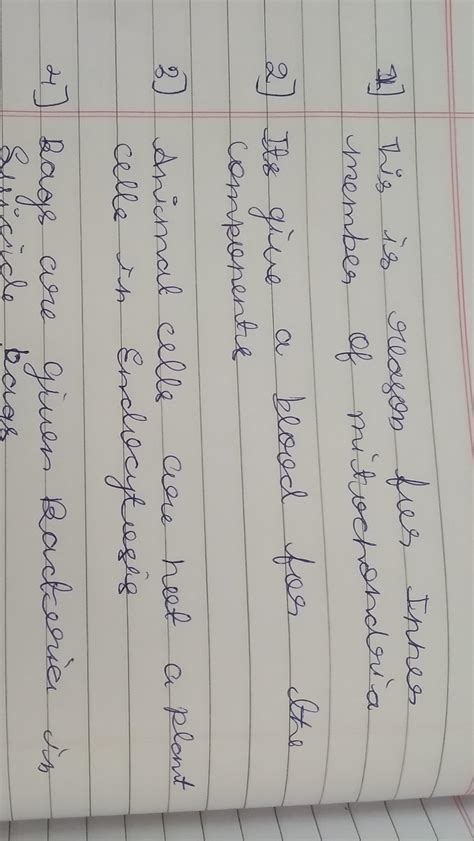 1] This is reason for Inner
member of mitochondria
2] Its give a blood for the
components
3] Animal cells are not a plant
cells in Endocytosis
4] Bags are given Bacteria in
Suicide bags